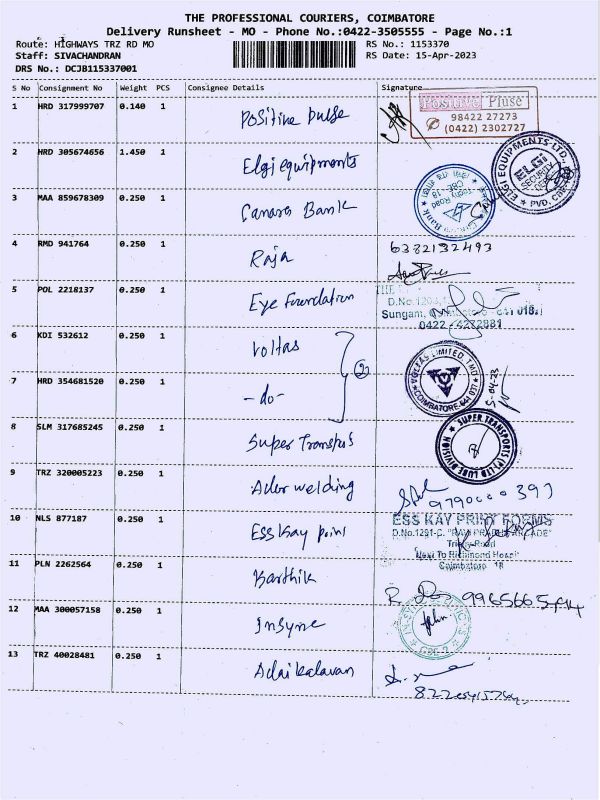 THE PROFESSIONAL COURIERS, COIMBATORE
Delivery Runsheet - MO - Phone No.:0422-3505555 - Page No.:1
Route: HIGHWAYS TRZ RD MO
RS No.: 1153370
Staff: SIVACHANDRAN
RS Date: 15-Apr-2023
DRS No.: DCJB115337001
S No Consignment No Weight PCS Consignee Details Signature
1 HRD 317999707 0.140 1 Positive pulse
Positive Pluse
98422 27273
(0422) 2302727
2 HRD 305674656 1.450 1 Elgi equipments
ELGI EQUIPMENTS LTD.,
ELGI
SECURITY
3 MAA 859678309 0.250 1 Canara Bank
4 RMD 941764 0.250 1 Raja
6382132493
5 POL 2218137 0.250 1 Eye Foundation
THE
D.No.1203,
Sungam,
0422 - 4272881
6 KDI 532612 0.250 1 Voltas
2
VOLTAS LIMITED
COIMBATORE-641 037
7 HRD 354681520 0.250 1 -do-
8 SLM 317685245 0.250 1 Super Transpots
SUPER TRANSPORTS (P) LTD LUBE DIVISION
9 TRZ 320005223 0.250 1 Ador welding
10 NLS 877187 0.250 1 Ess Kay print
ESS KAY PRINT FORMS
D.No.1291-C,
Road
Next To Richmond
Coimbatore - 18
11 PLN 2262564 0.250 1 Karthik
12 MAA 300057158 0.250 1 Insyne
13 TRZ 40028481 0.250 1 Adaikalavan